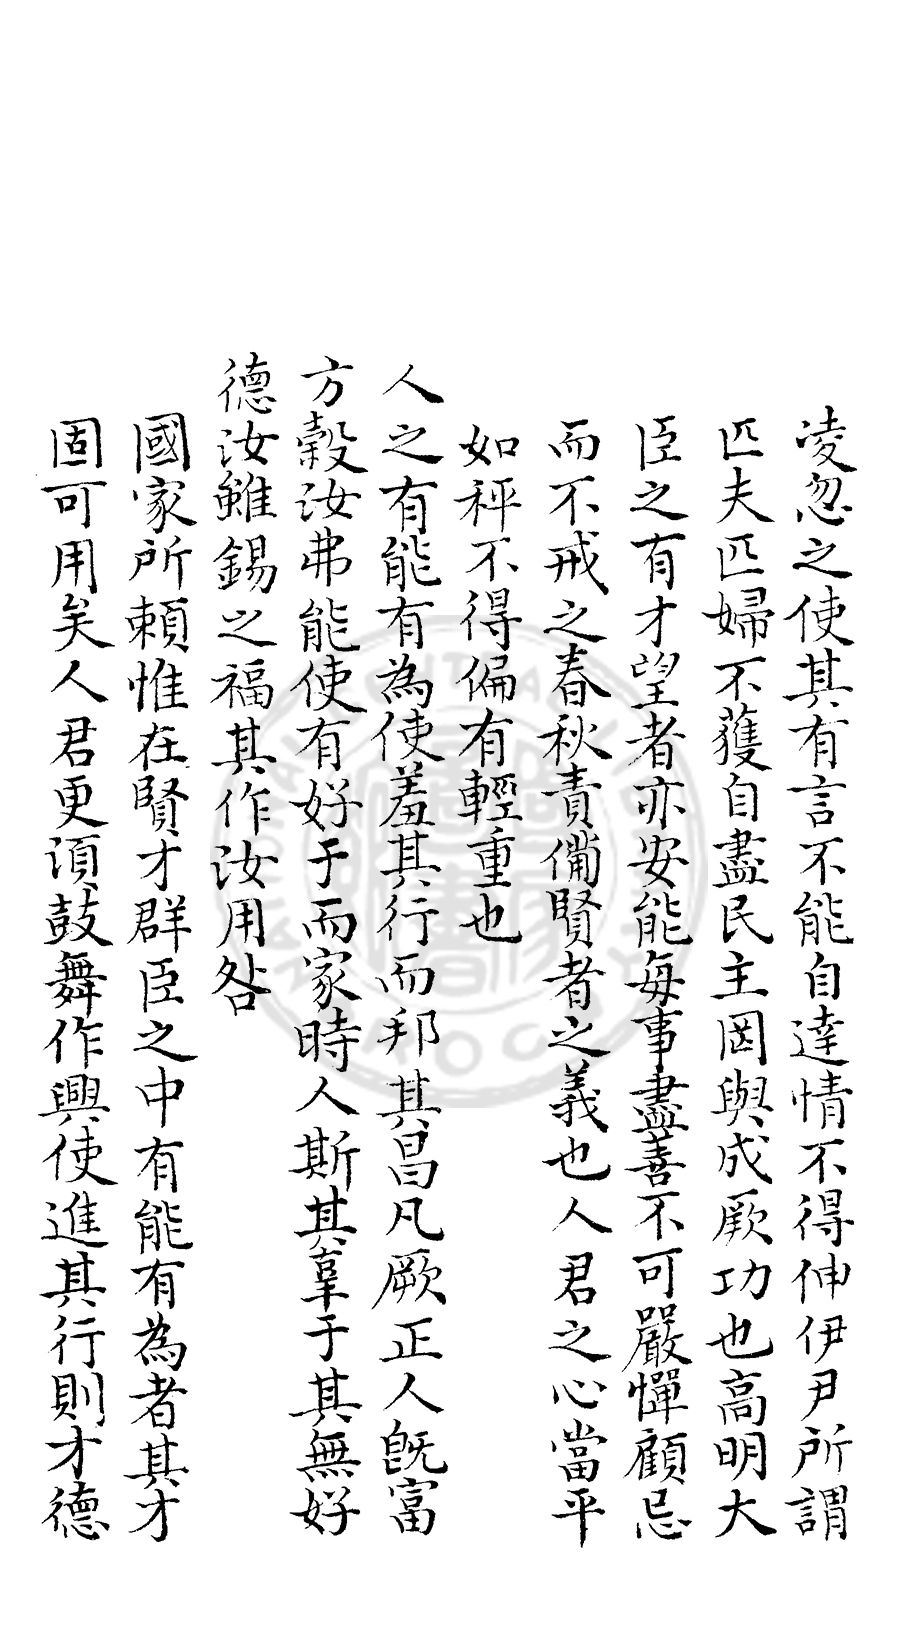 凌忽之使其有言不能自達情不得伸伊尹所謂
匹夫匹婦不獲自盡民主罔與成厥功也高明大
臣之有才望者亦安能每事盡善不可嚴憚顧忌
而不戒之春秋責備賢者之義也人君之心當平
如秤不得偏有輕重也
人之有能有為使羞其行而邦其昌凡厥正人旣富
方穀汝弗能使有好于而家時人斯其辜于其無好
德汝雖錫之福其作汝用咎
國家所賴惟在賢才群臣之中有能有為者其才
固可用矣人君更須鼓舞作興使進其行則才德